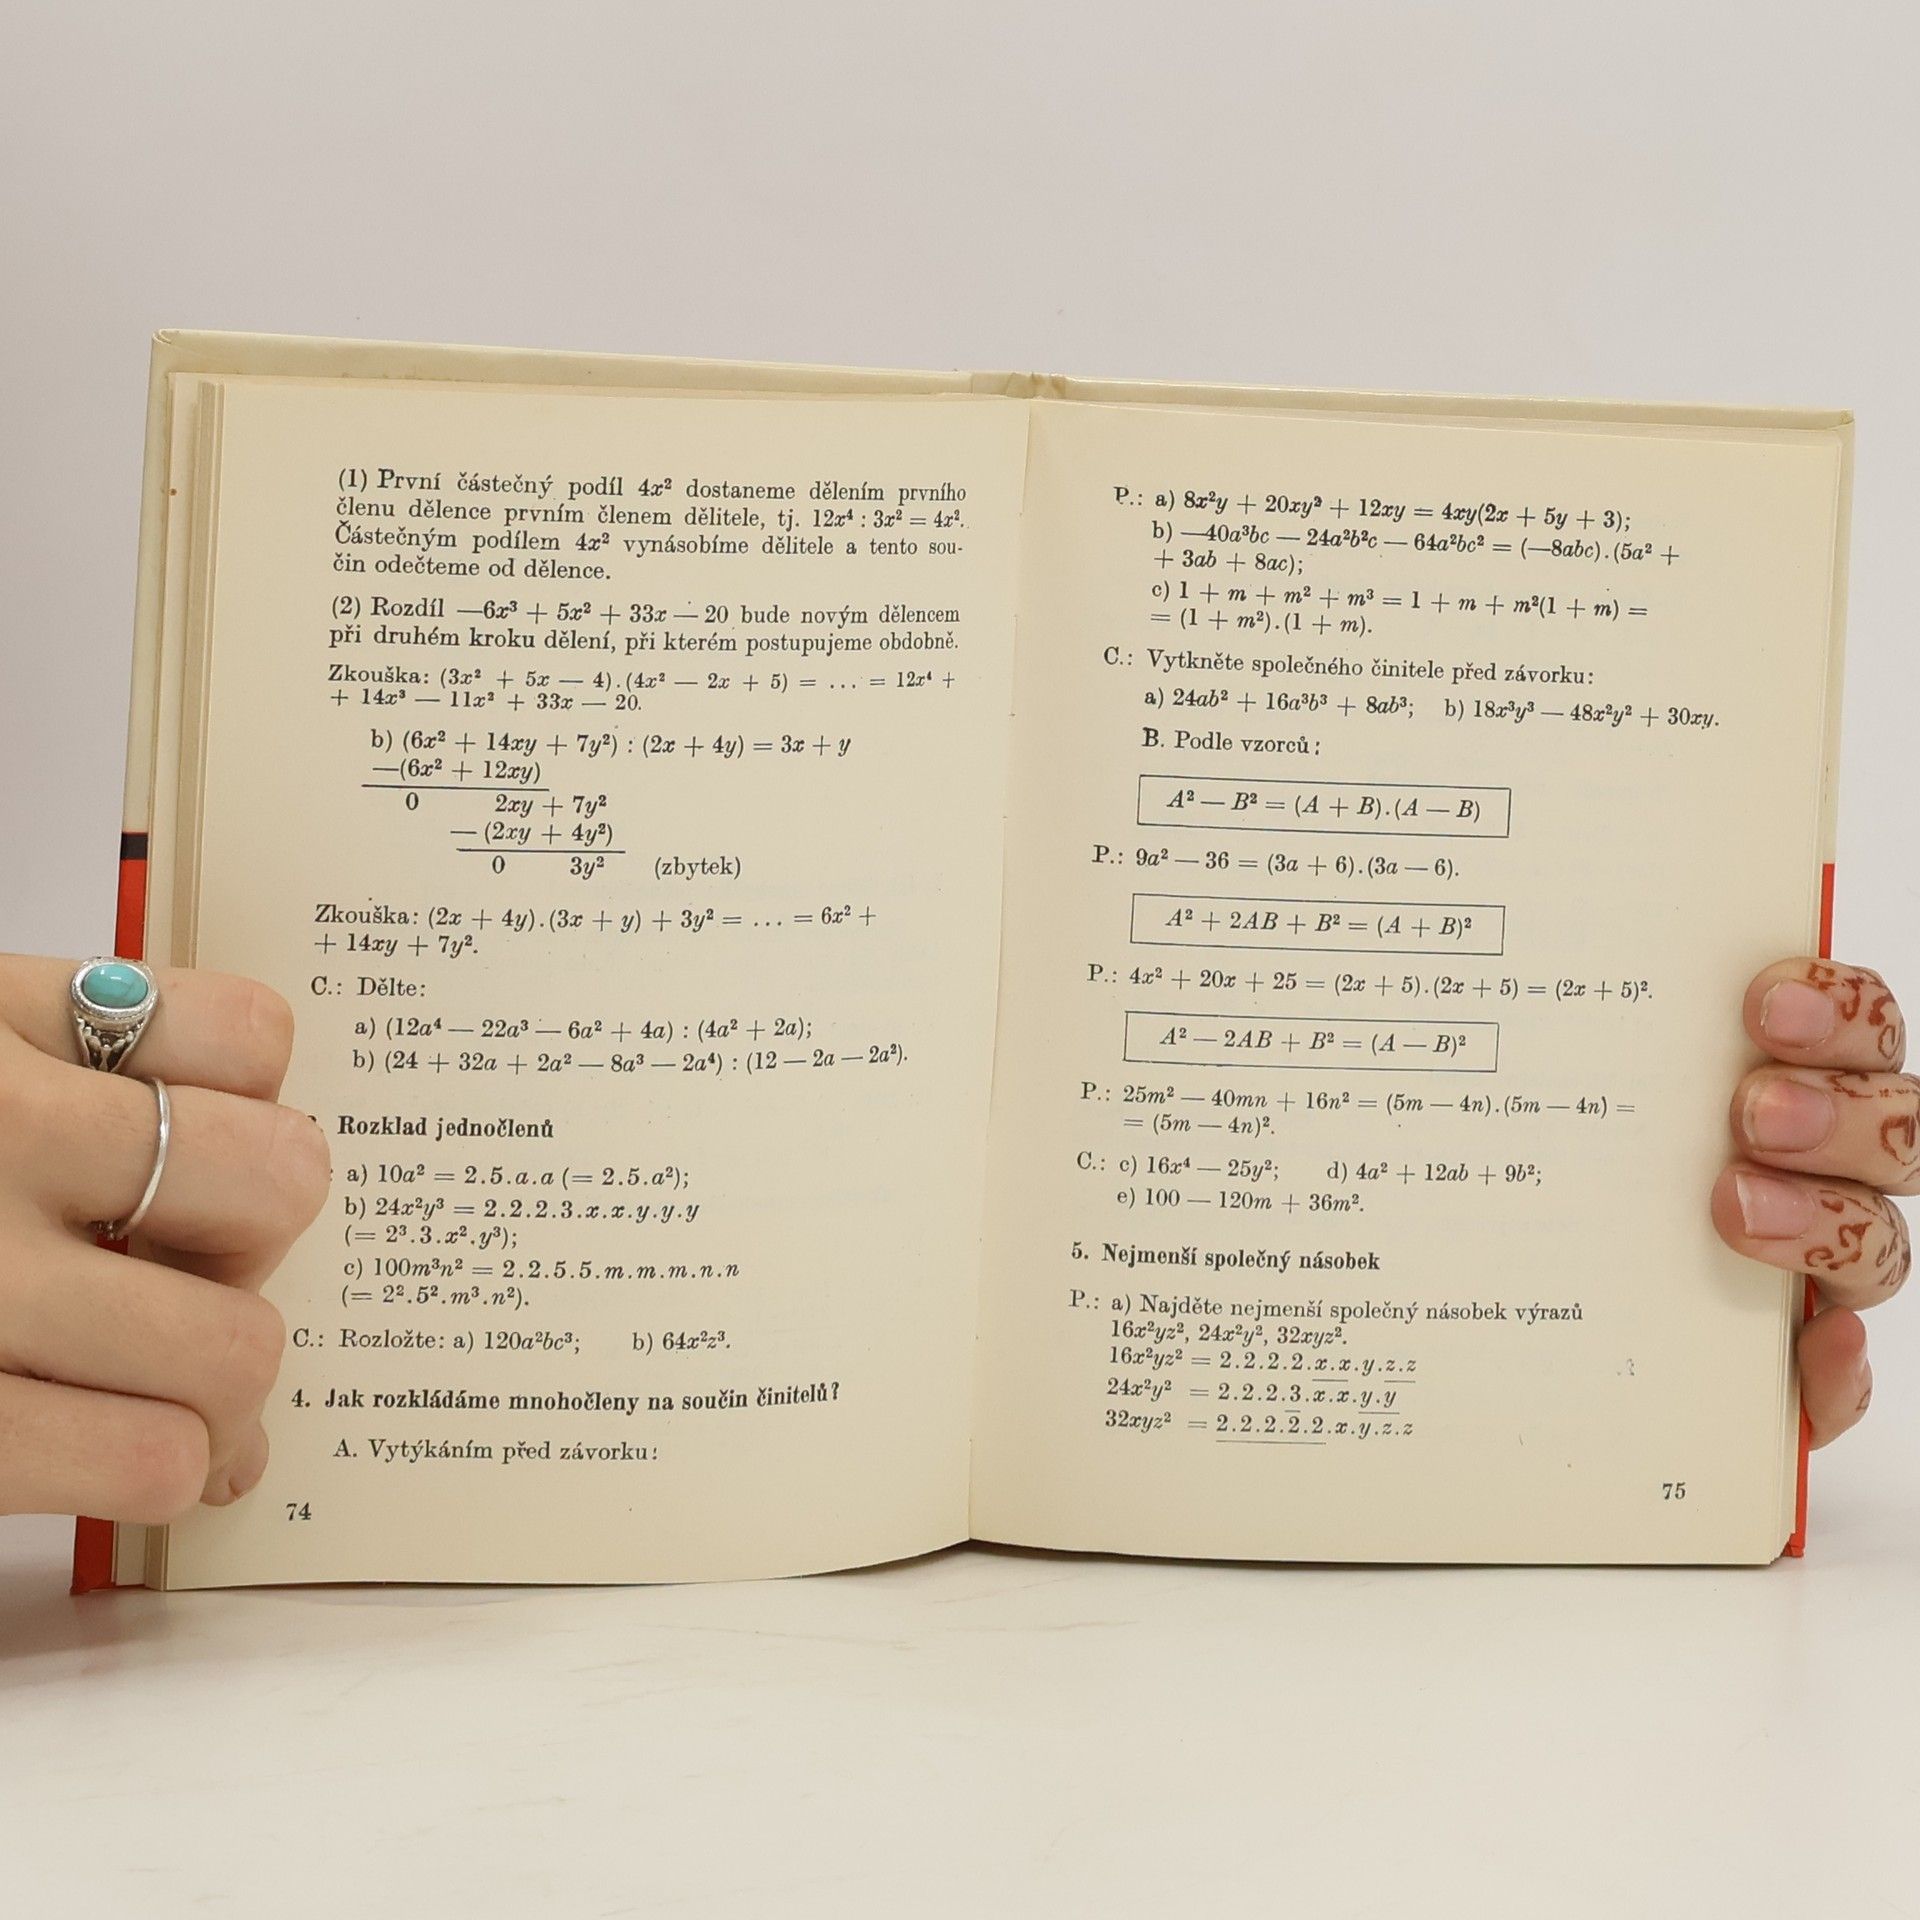 (1) První částečný podíl 4x² dostaneme dělením prvního
členu dělence prvním členem dělitele, tj. 12x⁴ : 3x² = 4x².
Částečným podílem 4x² vynásobíme dělitele a tento sou-
čin odečteme od dělence.
(2) Rozdíl —6x³ + 5x² + 33x — 20 bude novým dělencem
při druhém kroku dělení, při kterém postupujeme obdobně.
Zkouška: (3x² + 5x — 4).(4x² — 2x + 5) = ... = 12x⁴ +
+ 14x³ — 11x² + 33x — 20.
b) (6x² + 14xy + 7y²) : (2x + 4y) = 3x + y
—(6x² + 12xy)
0 2xy + 7y²
— (2xy + 4y²)
0 3y² (zbytek)
Zkouška: (2x + 4y).(3x + y) + 3y² = ... = 6x² +
+ 14xy + 7y².
C.: Dělte:
a) (12a⁴ — 22a³ — 6a² + 4a) : (4a² + 2a);
b) (24 + 32a + 2a² — 8a³ — 2a⁴) : (12 — 2a — 2a²).
Rozklad jednočlenů
a) 10a² = 2.5.a.a (= 2.5.a²);
b) 24x²y³ = 2.2.2.3.x.x.y.y.y
(= 2³.3.x².y³);
c) 100m³n² = 2.2.5.5.m.m.m.n.n
(= 2².5².m³.n²).
C.: Rozložte: a) 120a²bc³; b) 64x²z³.
4. Jak rozkládáme mnohočleny na součin činitelů?
A. Vytýkáním před závorku:
74
P.: a) 8x²y + 20xy² + 12xy = 4xy(2x + 5y + 3);
b) —40a³bc — 24a²b²c — 64a²bc² = (—8abc).(5a² +
+ 3ab + 8ac);
c) 1 + m + m² + m³ = 1 + m + m²(1 + m) =
= (1 + m²).(1 + m).
C.: Vytkněte společného činitele před závorku:
a) 24ab² + 16a³b³ + 8ab³; b) 18x³y³ — 48x²y² + 30xy.
B. Podle vzorců:
A² — B² = (A + B).(A — B)
P.: 9a² — 36 = (3a + 6).(3a — 6).
A² + 2AB + B² = (A + B)²
P.: 4x² + 20x + 25 = (2x + 5).(2x + 5) = (2x + 5)².
A² — 2AB + B² = (A — B)²
P.: 25m² — 40mn + 16n² = (5m — 4n).(5m — 4n) =
= (5m — 4n)².
C.: c) 16x⁴ — 25y²; d) 4a² + 12ab + 9b²;
e) 100 — 120m + 36m².
5. Nejmenší společný násobek
P.: a) Najděte nejmenší společný násobek výrazů
16x²yz², 24x²y², 32xyz².
16x²yz² = 2.2.2.2.x.x.y.z.z
24x²y² = 2.2.2.3.x.x.y.y
32xyz² = 2.2.2.2.2.x.y.z.z
75